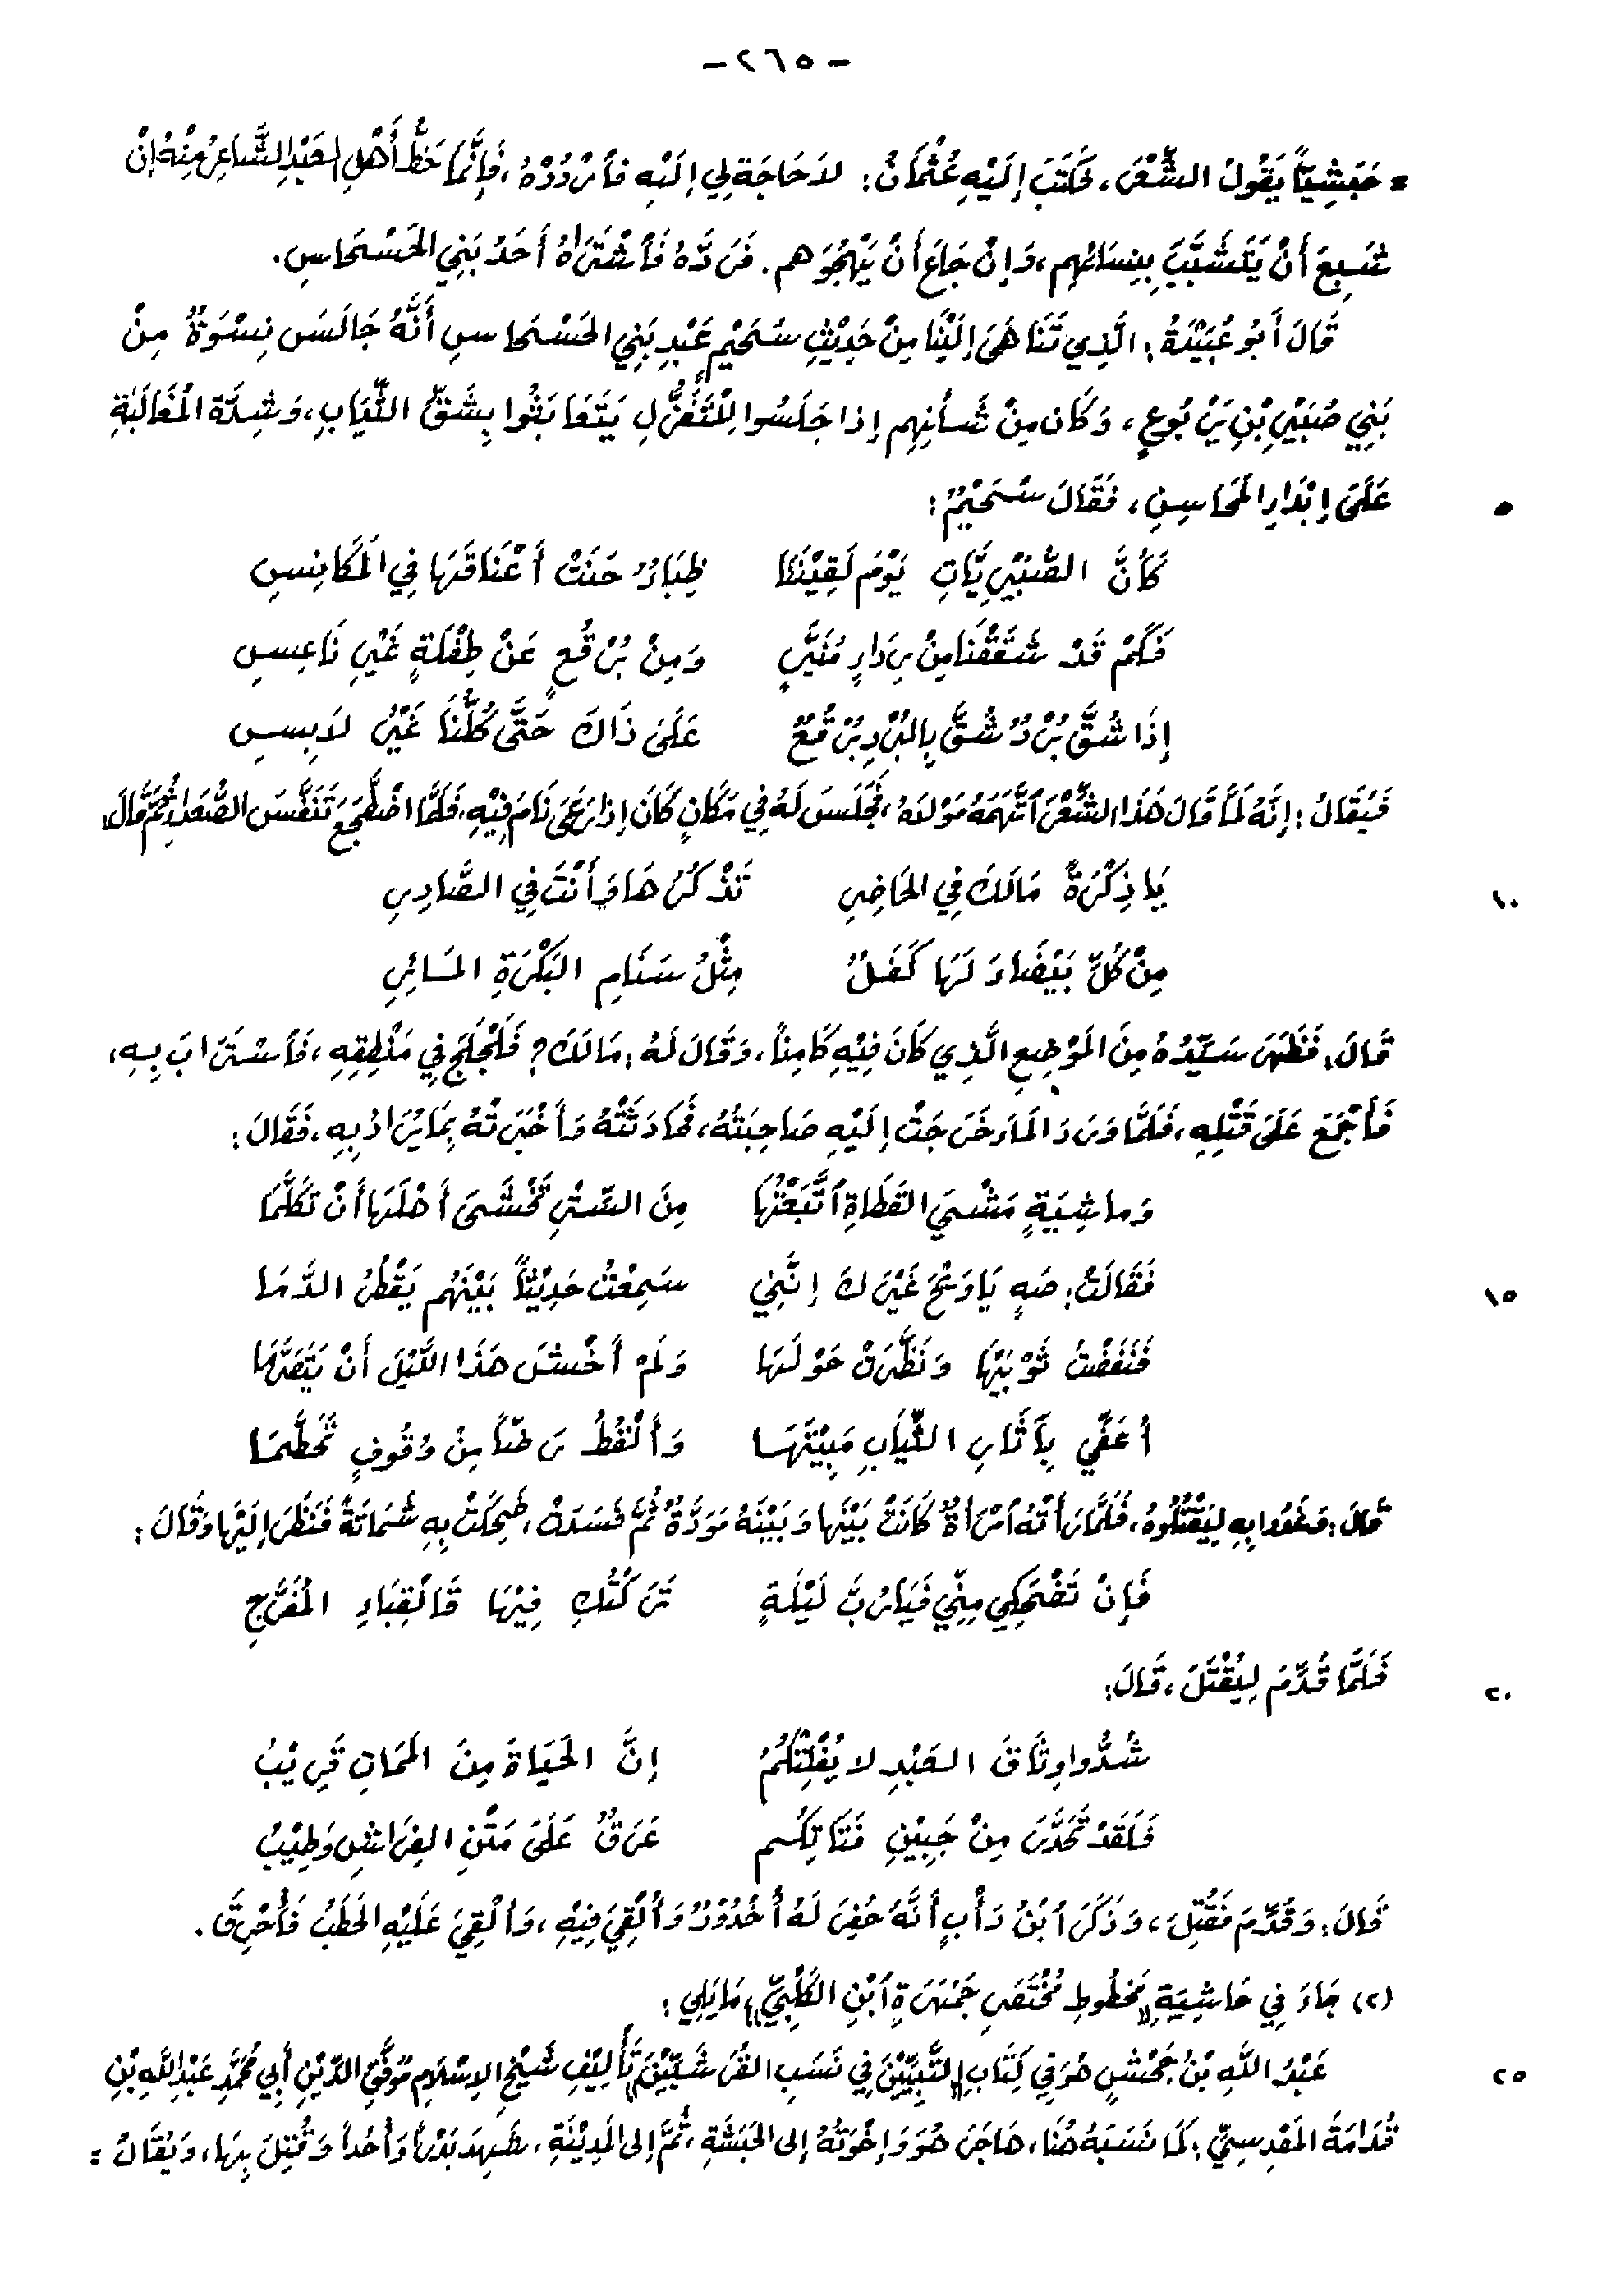 -٢٦٥-
= حَبَشِيّاً يَقُولُ الشِّعْرَ، فَكَتَبَ إِلَيْهِ عُثْمَانُ: لاَحَاجَةَ لِي إلَيْهِ فَٱرْدُدْهُ، فَإِنَّمَا حَظُّ أَهْلِ العَبْدِ الشَّاعِرِ مِنْهُ إِنْ
شَبِعَ أَنْ يَتَشَبَّبَ بِنِسَائِهِم، وَإِنْ جَاعَ أَنْ يَهْجُوَهم. فَرَدَّهُ فَٱشْتَرَاهُ أَحَدُ بَنِي الحَسْحَاسِ.
قَالَ أَبُو عُبَيْدَةَ: الَّذِي تَنَاهَى إِلَيْنَا مِنْ حَدِيْثِ سُحَيْمٍ عَبْدِ بَنِي الحَسْحَاسِ أَنَّهُ جَالَسَ نِسْوَةً مِنْ
بَنِي صُبَيْرِ بْنِ يَرْبُوعٍ، وَكَان مِنْ شَأْنِهِم إذا جَلَسُوا لِلْتَغَزُّلِ يَتَعَابَثُوا بِشَقِّ الثِّيَابِ، وَشِدَّة الْمُغَالَبَةِ
٥ عَلَى إبْدَاءِ المَحَاسِنِ، فَقَالَ سُحَيْمٌ:
كَأَنَّ الصُّبَيْرِيَّاتِ يَوْمَ لَقِيْنَنَا ظِبَاءٌ حَنَتْ أَعْنَاقَهَا فِي المَكَانِسِ
فَكَمْ قَدْ شَقَقْنَا مِنْ رِدَاءٍ مُنَيَّرٍ وَمِنْ بُرْقُعٍ عَنْ طِفْلَةٍ غَيْرِ نَاعِسِ
إِذَا شُقَّ بُرْدٌ شُقَّ بِالبُرْدِ بُرْقُعٌ عَلَى ذَاكَ حَتَّى كُلُّنَا غَيْرُ لاَبِسِ
فَيُقَالُ: إِنَّهُ لَمَّا قَالَ هَذَا الشِّعْرَ ٱتَّهَمَهُ مَوْلاَهُ، فَجَلَسَ لَهُ فِي مَكَانٍ كَانَ إذا رَعَى نَامَ فِيْهِ، فَلَمَّا اضْطَجَعَ تَنَفَّسَ الصُّعَدَاءَ ثُمَّ قَالَ:
١٠ يَا ذِكْرَةً مَالَكَ فِي الحَاضِرِ تَذْكُرُهَا وَأَنْتَ فِي الصَّادِرِ
مِنْ كُلِّ بَيْضَاءَ لَهَا كَفَلٌ مِثْلُ سَنَامِ البَكْرَةِ المَائِرِ
قَالَ: فَظَهَرَ سَيِّدُهُ مِنَ المَوْضِعِ الَّذِي كَانَ فِيْهِ كَامِناً، وَقَالَ لَهُ: مَالَكَ؟ فَلَجْلَجَ فِي مَنْطِقِهِ، فَٱسْتَرَابَ بِهِ،
فَأَجْمَعَ عَلَى قَتْلِهِ، فَلَمَّا وَرَدَ المَاءَ خَرَجَتْ إِلَيْهِ صَاحِبَتُهُ، فَحَادَثَتْهُ وَأَخْبَرَتْهُ بِمَا يُرَادُ بِهِ، فَقَالَ:
وَماشِيَةٍ مَشْيَ القَطَاةِ ٱتَّبَعْتُهَا مِنَ السِّتْرِ تَخْشَى أَهْلَهَا أَنْ تَكَلَّمَا
١٥ فَقَالَتْ: صَهٍ يَا وَيْحَ غَيْرَكَ إِنَّنِي سَمِعْتُ حَدِيْثاً بَيْنَهُم يَقْطُرُ الدَّمَا
فَنَفَضَتْ ثَوْبَيْهَا وَنَظَّرَتْ حَوْلَهَا وَلَمْ أَخْشَ هَذَا اللَّيْلَ أَنْ يَتَصَرَّمَا
أُعَفِّي بِآثَارِ الثِّيَابِ مَبِيْتَهَا وَأَلْقُطُ رَضّاً مِنْ وُقُوفٍ تَحَطَّمَا
قَالَ: وَغَدَوا بِهِ لِيَقْتُلُوهُ، فَلَمَّا رَأَتْهُ ٱمْرَأَةٌ كَانَتْ بَيْنَهَا وَبَيْنَهُ مَوَدَّةٌ ثُمَّ فَسَدَتْ، ضَحِكَتْ بِهِ شَمَاتَةً فَنَظَرَ إِلَيْهَا وَقَالَ:
فَإِنْ تَضْحَكِي مِنِّي فَيَا رُبَّ لَيْلَةٍ تَرَكْتُكِ فِيْهَا كَالقِبَاءِ المُفَرَّجِ
٢٠ فَلَمَّا قُدِّمَ لِيُقْتَلَ، قَالَ:
شُدُّوا وِثَاقَ العَبْدِ لا يُفْلِتْكُمُ إِنَّ الحَيَاةَ مِنَ المَمَاتِ قَرِيْبُ
فَلَقَدْ تَحَدَّرَ مِنْ جَبِيْنِ فَتَاتِكُم عَرَقٌ عَلَى مَتْنِ الفِرَاشِ وَطِيْبُ
قَالَ: وَقُدِّمَ فَقُتِلَ، وَذَكَرَ ٱبْنُ دَأْبٍ أَنَّهُ حُفِرَ لَهُ أُخْدُوْدٌ وَأُلْقِيَ فِيْهِ، وَأُلْقِيَ عَلَيْهِ الحَطَبُ فَأُحْرِقَ.
(٢) جَاءَ فِي حَاشِيَةِ «مَخْطُوطِ مُخْتَصَرِ جَمْهَرَةِ ٱبْنِ الكَلْبِيِّ» مَا يَلِي:
٢٥ عَبْدُ اللَّهِ بْنُ جَحْشٍ هُوَ فِي كِتَابِ «التَّبِيِّيْنَ فِي نَسَبِ القُرَشِيِّيْنَ» تَأْلِيْفِ شَيْخِ الإِسْلاَمِ مُوَفَّقِ الدِّيْنِ أَبِي مُحَمَّدٍ عَبْدِ اللَّهِ بْنِ
قُدَامَةَ المَقْدِسِيِّ: كَمَا نَسَبَهُ هُنَا، هَاجَرَ هُوَ وَإِخْوَتُهُ إلى الحَبَشَةِ، ثُمَّ إلى المَدِيْنَةِ، شَهِدَ بَدْراً وَأُحُداً وَقُتِلَ بِهَا، وَيُقَالُ =